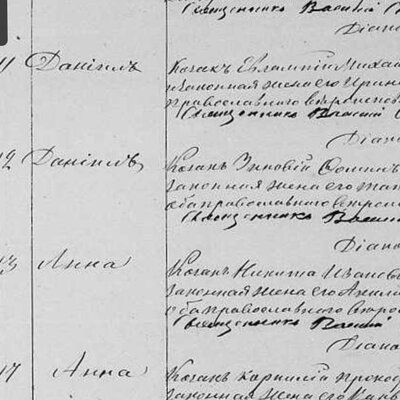 Священникъ Василій
Діако
11 Даніилъ Козакъ Евлампій Миха
и законная жена его Ирин
православнаго вѣроисповѣ
Священникъ Василій
Діако
12 Даніилъ Козакъ Зиновій Ѳомин
законная жена его Тат
оба православнаго вѣроис
Священникъ Васил
Діако
13 Анна Козакъ Никита Ивано
законная жена его Акили
оба православнаго вѣрои
Священникъ Василій
Діако
17 Анна Козакъ Корнилій Проко
законная жена его